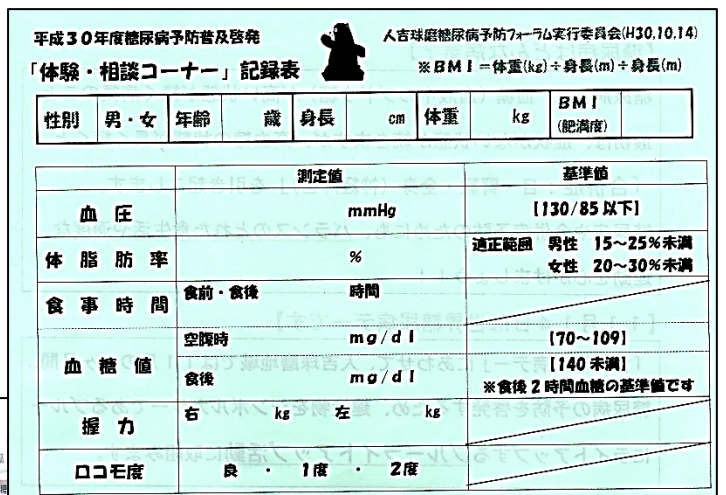 平成30年度糖尿病予防普及啓発
人吉球磨糖尿病予防フォーラム実行委員会(H30.10.14)
「体験・相談コーナー」記録表
※BMI=体重(kg)÷身長(m)÷身長(m)
性別 男・女 年齢 歳 身長 cm 体重 kg BMI (肥満度)
測定値 基準値
血圧 mmHg [130/85以下]
体脂肪率 % 適正範囲 男性 15~25%未満
女性 20~30%未満
食事時間 食前・食後 時間
血糖値 空腹時 mg/dl [70~109]
食後 mg/dl [140未満]
※食後2時間血糖の基準値です
握力 右 kg 左 kg
ロコモ度 良 ・ 1度 ・ 2度